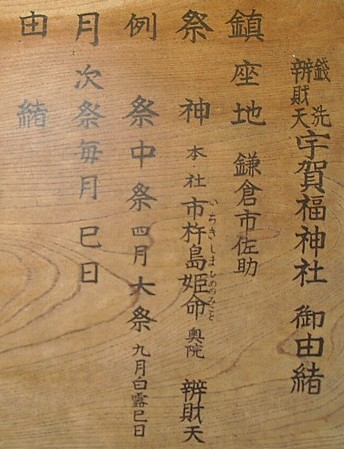 銭洗辨財天 宇賀福神社 御由緒
鎮座地 鎌倉市佐助
祭神 本社 市杵島姫命 奥院 辨財天
いちきしまひめのみこと
例祭 中祭 四月 大祭 九月白露巳日
月次祭 毎月巳日
由緒